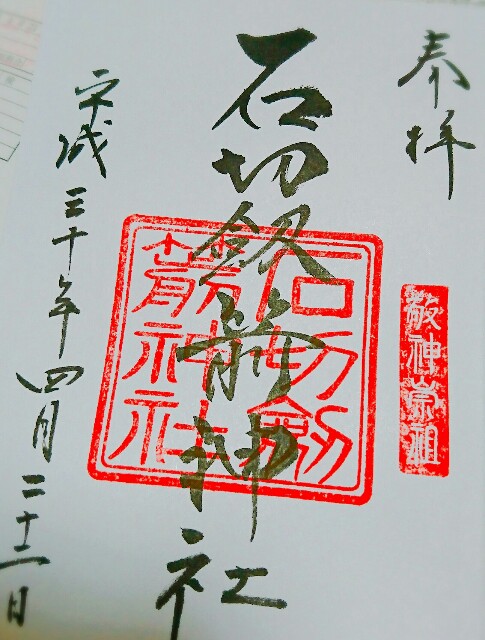 奉拝
敬神崇祖
石切劔箭神社
石切劔
箭神社
平成三十年四月二十二日